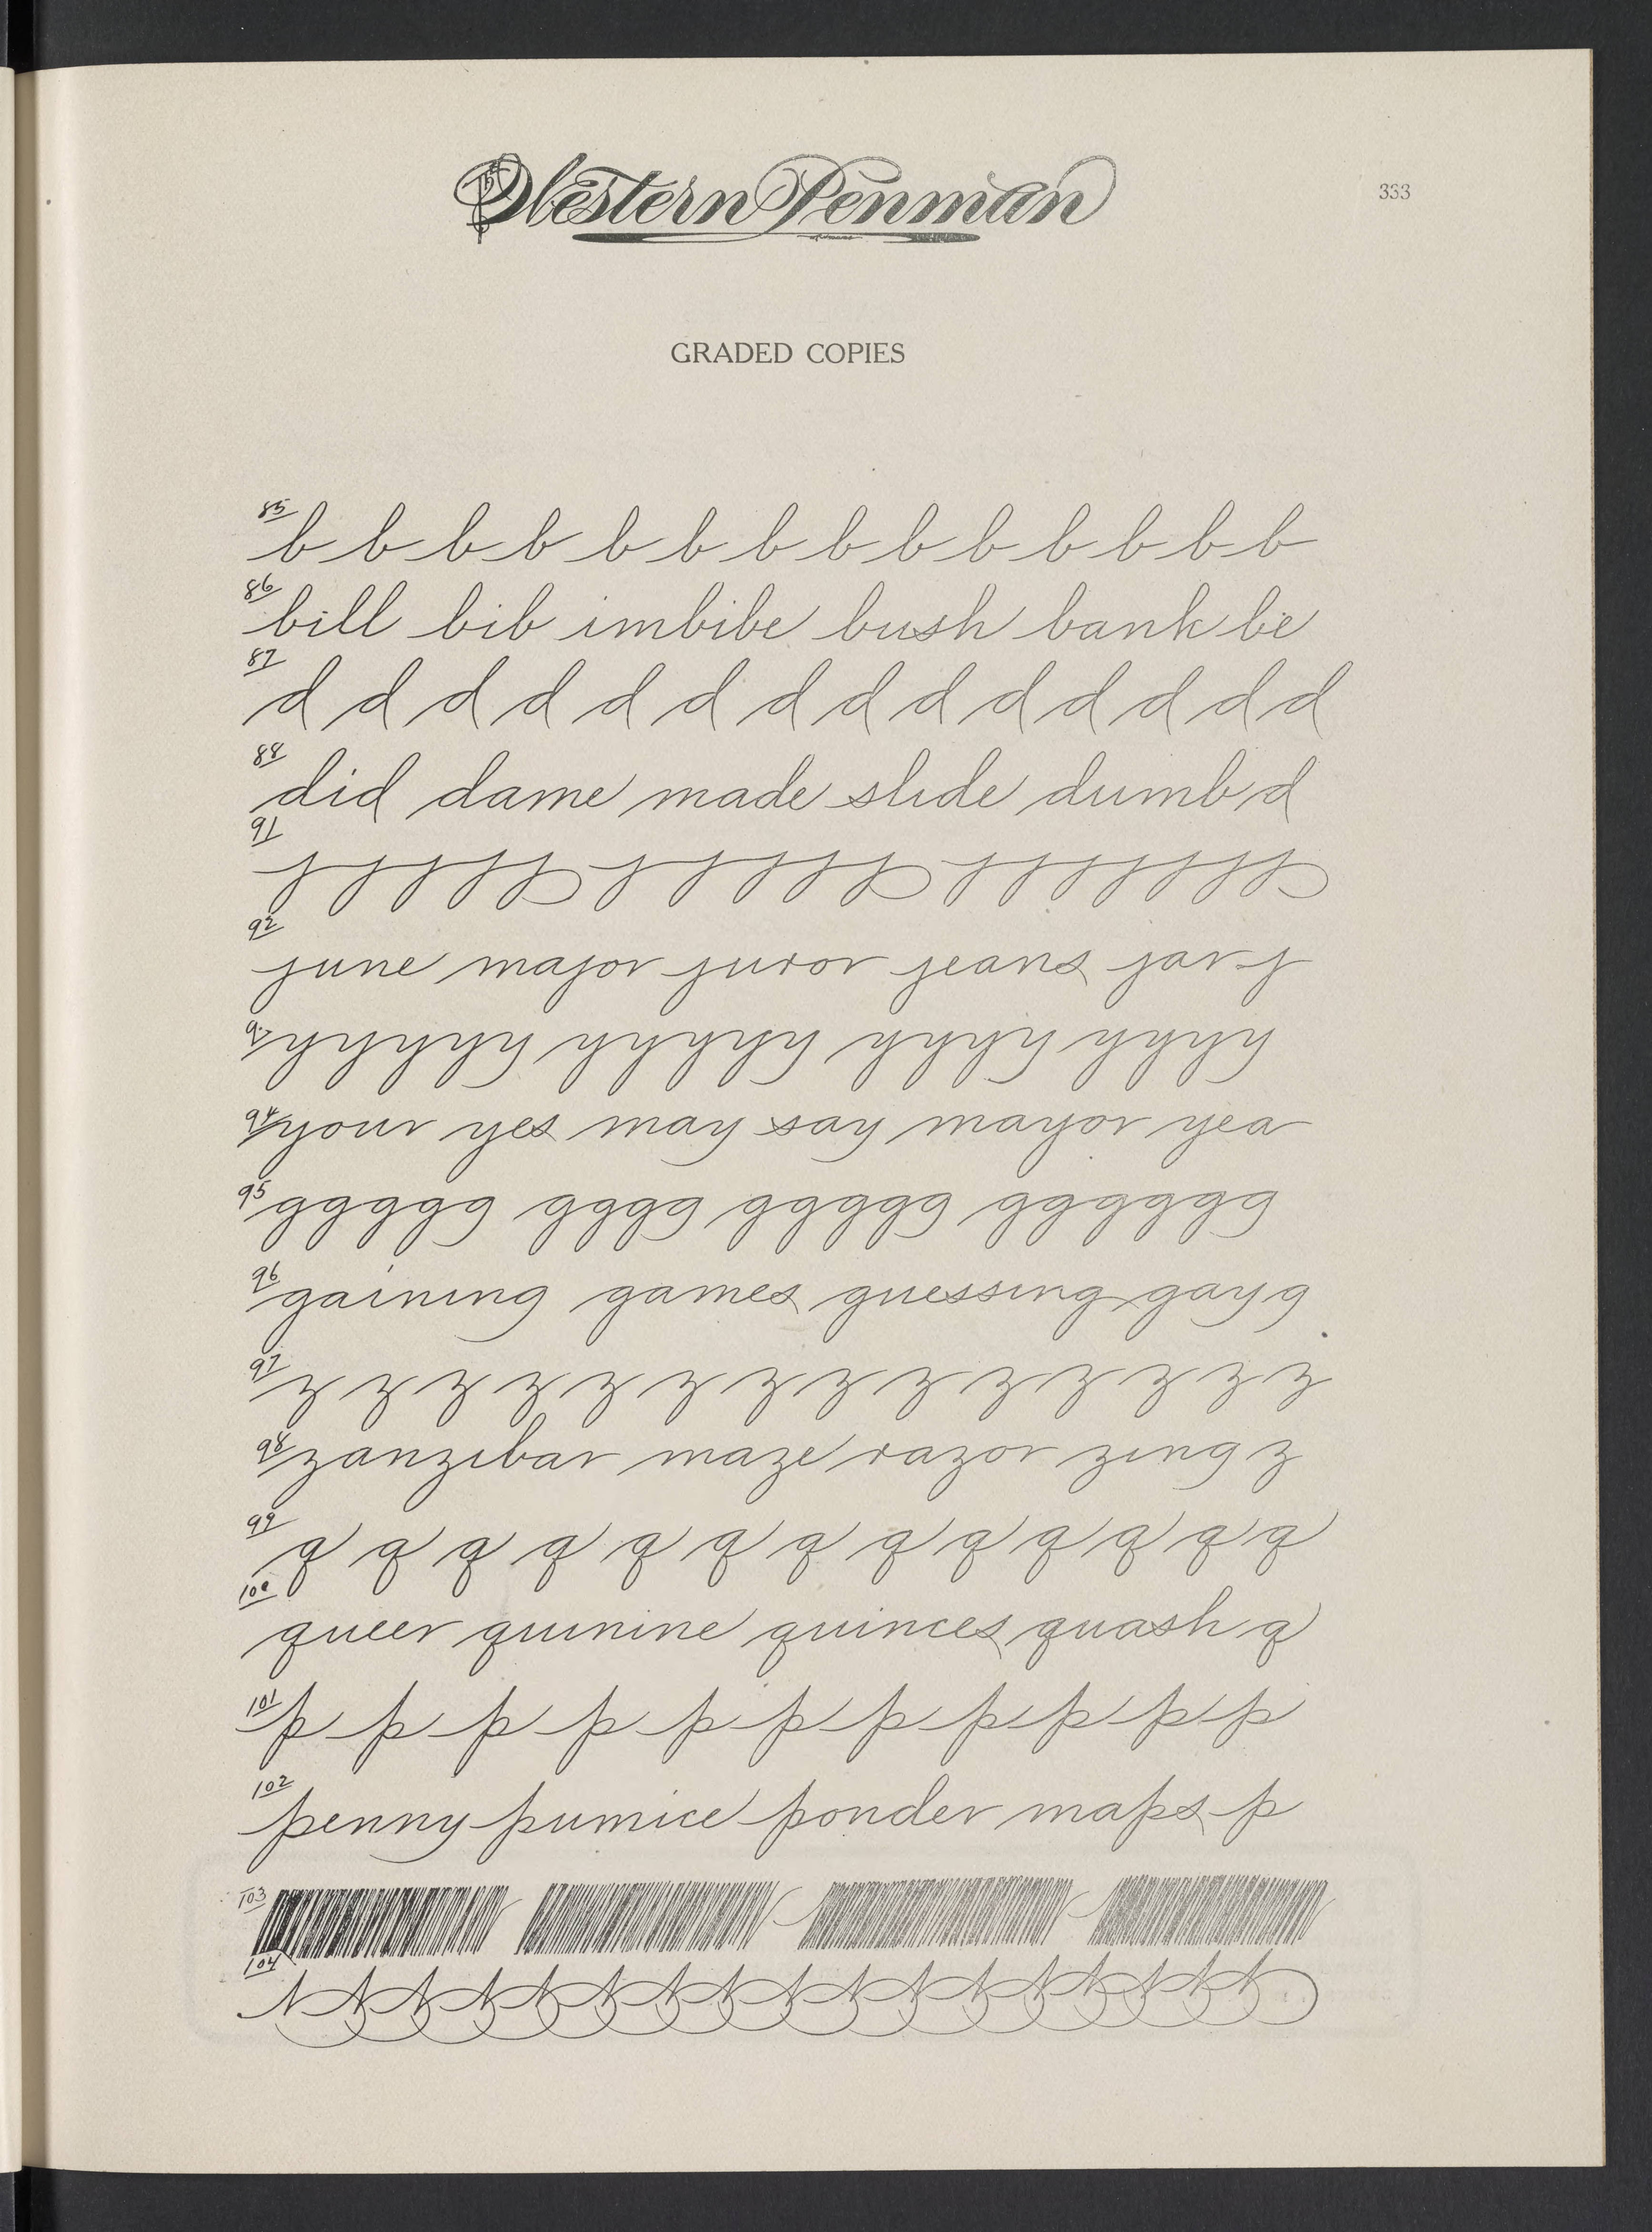 The Western Penman
333
GRADED COPIES
85 b b b b b b b b b b b b b b
86 bill bib imbibe bush bank be
87 d d d d d d d d d d d d d d
88 did dame made slide dumb d
91 j j j j j j j j j j j j j j j j j j j
92 june major juror jeans jar j
93 y y y y y y y y y y y y y y y y y y
94 your yes may say mayor yea
95 g g g g g g g g g g g g g g g g g g g g
96 gaining games guessing gay g
97 z z z z z z z z z z z z z z
98 zanzibar maze razor zing z
99 q q q q q q q q q q q q q
100 queer quinine quinces quash q
101 p p p p p p p p p p p
102 penny pumice ponder maps p
103
104